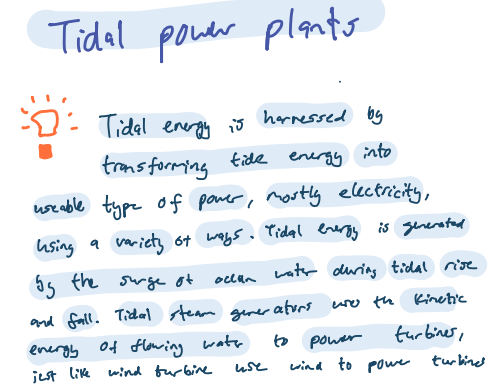 Tidal power plants
Tidal energy is harnessed by
transforming tide energy into
useable type of power, mostly electricity,
using a variety of ways. Tidal energy is generated
by the surge of ocean water during tidal rise
and fall. Tidal steam generators use th kinetic
energy of flowing water to power turbines,
just like wind turbine use wind to power turbines